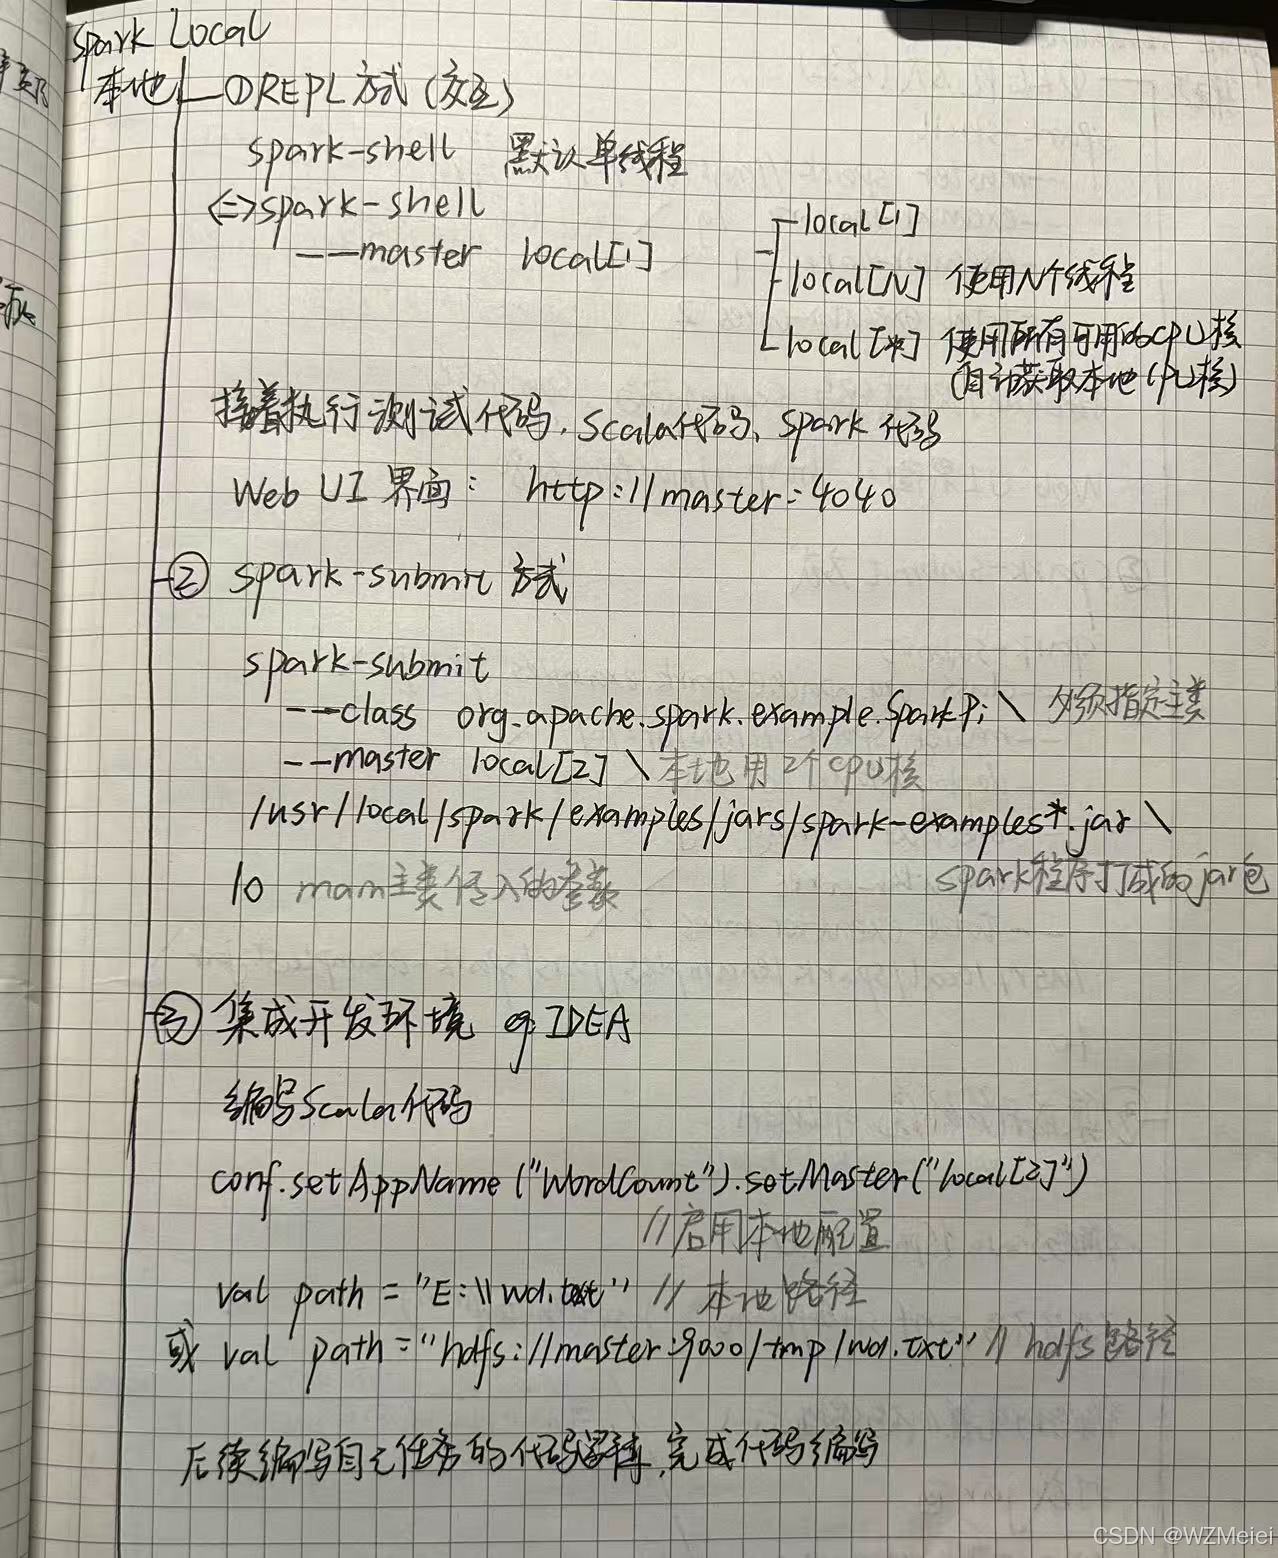 Spark Local
本地 ①REPL方式(交互)
spark-shell 默认单线程
<=>spark-shell
--master local[1]
local[1]
local[N] 使用N个线程
local[*] 使用所有可用的CPU核
(自动获取本地CPU核)
接着执行测试代码、Scala代码、Spark代码
Web UI 界面: http://master:4040
② spark-submit 方式
spark-submit
--class org.apache.spark.example.SparkPi \ 必须指定主类
--master local[2] \ 本地用2个CPU核
/usr/local/spark/examples/jars/spark-examples*.jar \
10 main主类传入的参数 spark程序打成的jar包
③ 集成开发环境 eg IDEA
编写Scala代码
conf.setAppName("WordCount").setMaster("local[2]")
//启用本地配置
val path = "E:\\wd.txt" // 本地路径
或 val path = "hdfs://master:9000/tmp/wd.txt" // hdfs路径
后续编写自己任务的代码逻辑,完成代码编写
CSDN @WZMeiei